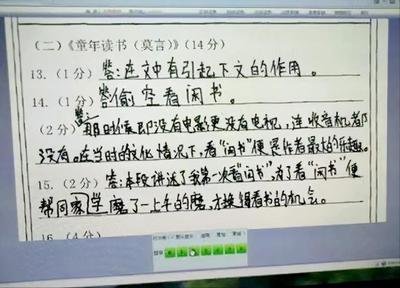 (二)《童年读书(莫言)》(14分)
13.(1分)答:在文中有引起下文的作用。
14.(1分)答偷空看闲书。
(2分)答:那时候既没有电影更没有电视,连收音机都
没有。在当时的文化情况下,看“闲书”便是作者最大的乐趣。
15.(2分)答:本段讲述了我第一次看“闲书”,为了看“闲书”便
帮同家学磨了一上午的磨,才换得看书的机会。
16.(4分)